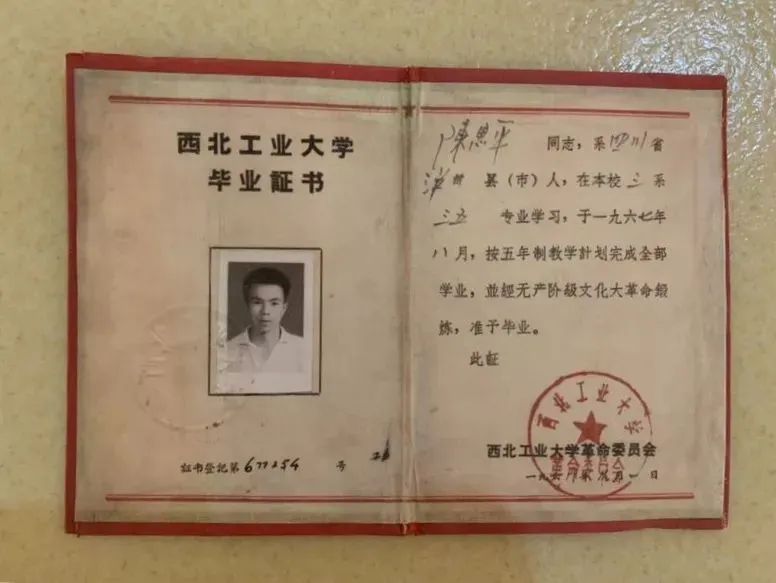 西北工业大学
毕业証书
証书登记第677254号
陳思平 同志,系四川省
县(市)人,在本校三系
三五 专业学习,于一九六七年
八月,按五年制教学計划完成全部
学业,並經无产阶级文化大革命鍛
炼,准予毕业。
此証
西北工业大学
革命委员会
西北工业大学革命委员会